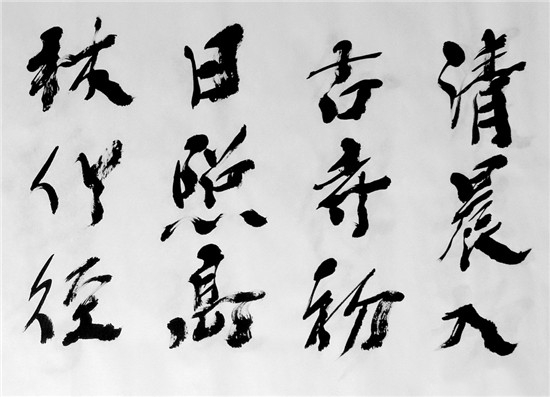 清晨入
古寺初
日照高
林竹径